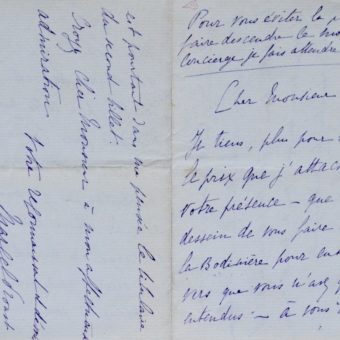 Pour vous éviter la p
faire descendre le mo
concierge je fais attendre
Cher Monsieur
Je tiens, plus pour
le prix que j'attac
votre présence – que
dessein de vous faire
la Bodinière pour en
vers que vous n'avez
entendus – à vous
est pourtant dans ma pensée le titulaire
du second billet.
Croyez cher Monsieur à mon affectueuse
admiration
Votre respectueux et dévoué
Marcel Proust